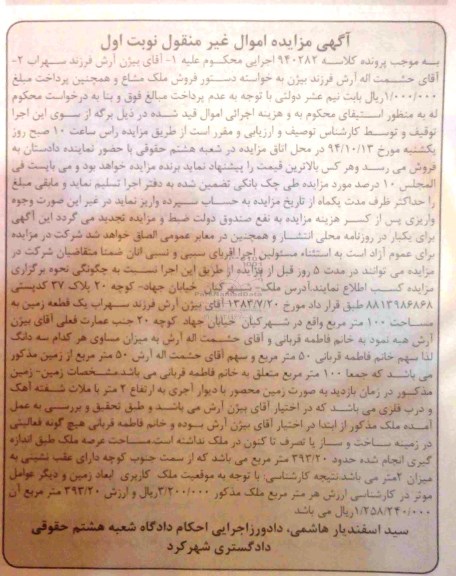 آگهی مزایده اموال غیر منقول نوبت اول
به موجب پرونده کلاسه ۹۴۰۲۸۲ اجرایی محکوم علیه ۱- آقای بیژن آرش فرزند سهراب ۲-
آقای حشمت اله آرش فرزند بیژن به خواسته دستور فروش ملک مشاع و همچنین پرداخت مبلغ
۱/۰۰۰/۰۰۰ریال بابت نیم عشر دولتی با توجه به عدم پرداخت مبالغ فوق و بنا به درخواست محکوم
له به منظور استیفای محکوم به و هزینه اجرائی اموال قید شده در ذیل برگه از سوی این اجرا
توقیف و توسط کارشناس توصیف و ارزیابی و مقرر است از طریق مزایده راس ساعت ۱۰ صبح روز
یکشنبه مورخ ۹۴/۱۰/۱۳ در محل اتاق مزایده در شعبه هشتم حقوقی با حضور نماینده دادستان به
فروش می رسد وهر کس بالاترین قیمت را پیشنهاد نماید برنده مزایده خواهد بود و می بایست فی
المجلس ۱۰ درصد مورد مزایده طی چک بانکی تضمین شده به دفتر اجرا تسلیم نماید و مابقی مبلغ
را حداکثر ظرف مدت یکماه از تاریخ مزایده به حساب سپرده واریز نماید در غیر این صورت وجوه
واریزی پس از کسر هزینه مزایده به نفع صندوق دولت ضبط و مزایده تجدید می گردد این آگهی
برای یکبار در روزنامه محلی انتشار و همچنین در معابر عمومی الصاق خواهد شد شرکت در مزایده
برای عموم آزاد است به استثناء مسئولین اجرا اقربای سببی و نسبی آنان ضمنا متقاضیان شرکت در
مزایده می توانند در مدت ۵ روز قبل از مزایده از طریق این اجرا نسبت به چگونگی نحوه برگزاری
مزایده کسب اطلاع نمایند.آدرس ملک- شهرکیان خیابان جهاد- کوچه ۲۰ پلاک ۳۷ کدپستی
۸۸۱۳۹۸۶۸۶۸ طبق قرار داد مورخ ۱۳۸۳/۷/۲۰ آقای بیژن آرش فرزند سهراب یک قطعه زمین به
مساحت ۱۰۰ متر مربع واقع در شهرکیان خیابان جهاد کوچه ۲۰ جنب عمارت فعلی آقای بیژن
آرش هبه نمود به خانم فاطمه قربانی و آقای حشمت اله آرش به میزان مساوی هر کدام سه دانگ
لذا سهم خانم فاطمه قربانی ۵۰ متر مربع و سهم آقای حشمت اله آرش ۵۰ متر مربع از زمین مذکور
می باشد که جمعا ۱۰۰ متر مربع متعلق به خانم فاطمه قربانی می باشد.مشخصات زمین- زمین
مذکور در زمان بازدید به صورت زمین محصور با دیوار آجری به ارتفاع ۲ متر با ملات شفته آهک
و درب فلزی می باشد که در اختیار آقای بیژن آرش می باشد و طبق تحقیق و بررسی به عمل
آمده ملک مذکور از ابتدا در اختیار آقای بیژن آرش بوده و خانم فاطمه قربانی هیچ گونه فعالیتی
در زمینه ساخت و ساز یا تصرف تا کنون در ملک نداشته است.مساحت عرصه ملک طبق اندازه
گیری انجام شده حدود ۳۹۳/۲۰ متر مربع می باشد که از سمت جنوب کوچه دارای عقب نشینی به
میزان ۲متر می باشد.نتیجه کارشناسی: با توجه به موقعیت ملک کاربری ابعاد زمین و دیگر عوامل
موثر در کارشناسی ارزش هر متر مربع ملک مذکور ۳/۲۰۰/۰۰۰ریال و ارزش ۳۹۳/۲۰ متر مربع آن
۱/۲۵۸/۲۴۰/۰۰۰ریال می باشد
سید اسفندیار هاشمی، دادورزاجرایی احکام دادگاه شعبه هشتم حقوقی
دادگستری شهرکرد